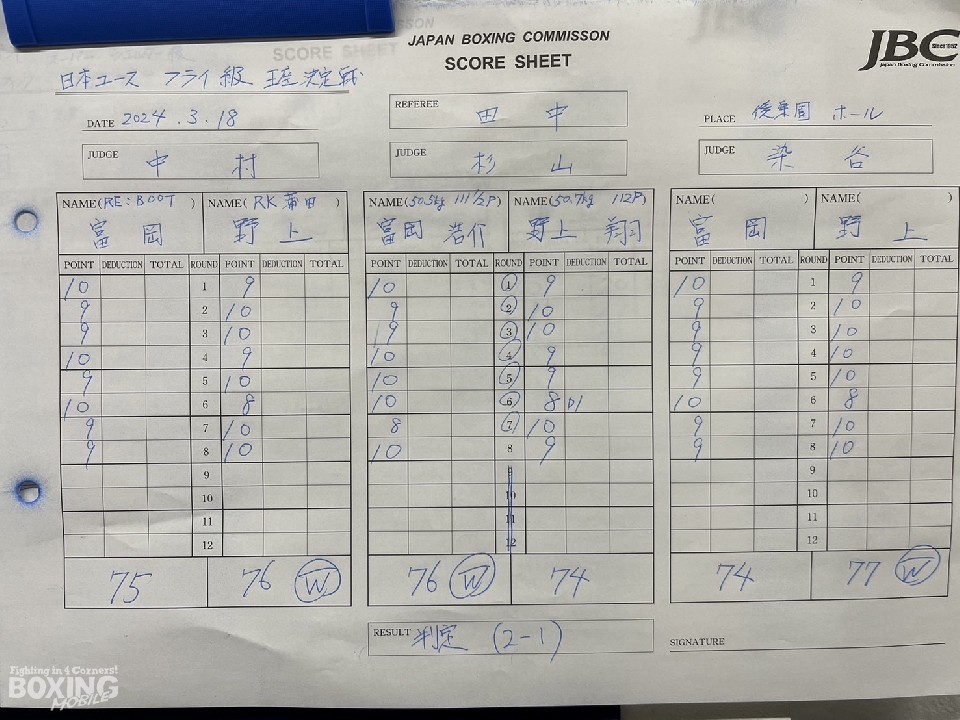 JAPAN BOXING COMMISSON
SCORE SHEET
JBC
Japan Boxing Commission
日本ユース フライ級 王座決定戦
DATE 2024.3.18
REFEREE 田中
PLACE 後楽園 ホール
JUDGE 中村
JUDGE 杉山
JUDGE 染谷
NAME(RE:BOOT) NAME(RK蒲田) NAME(50.5kg 111 1/2P) NAME(50.7kg 112P) NAME( ) NAME( )
富岡 野上 富岡 浩介 野上 翔 富岡 野上
POINT DEDUCTION TOTAL ROUND POINT DEDUCTION TOTAL POINT DEDUCTION TOTAL ROUND POINT DEDUCTION TOTAL POINT DEDUCTION TOTAL ROUND POINT DEDUCTION TOTAL
10 1 9 10 1 9 10 1 9
9 2 10 9 2 10 9 2 10
9 3 10 9 3 10 9 3 10
10 4 9 10 4 9 9 4 10
9 5 10 10 5 9 9 5 10
10 6 8 10 6 8 D1 10 6 8
9 7 10 8 7 10 9 7 10
9 8 10 10 8 9 9 8 10
9 9 9
10 10 10
11 11 11
12 12 12
75 76 W 76 W 74 74 77 W
RESULT 判定 (2-1)
SIGNATURE
Fighting in 4 Corners!
BOXING
MOBILE